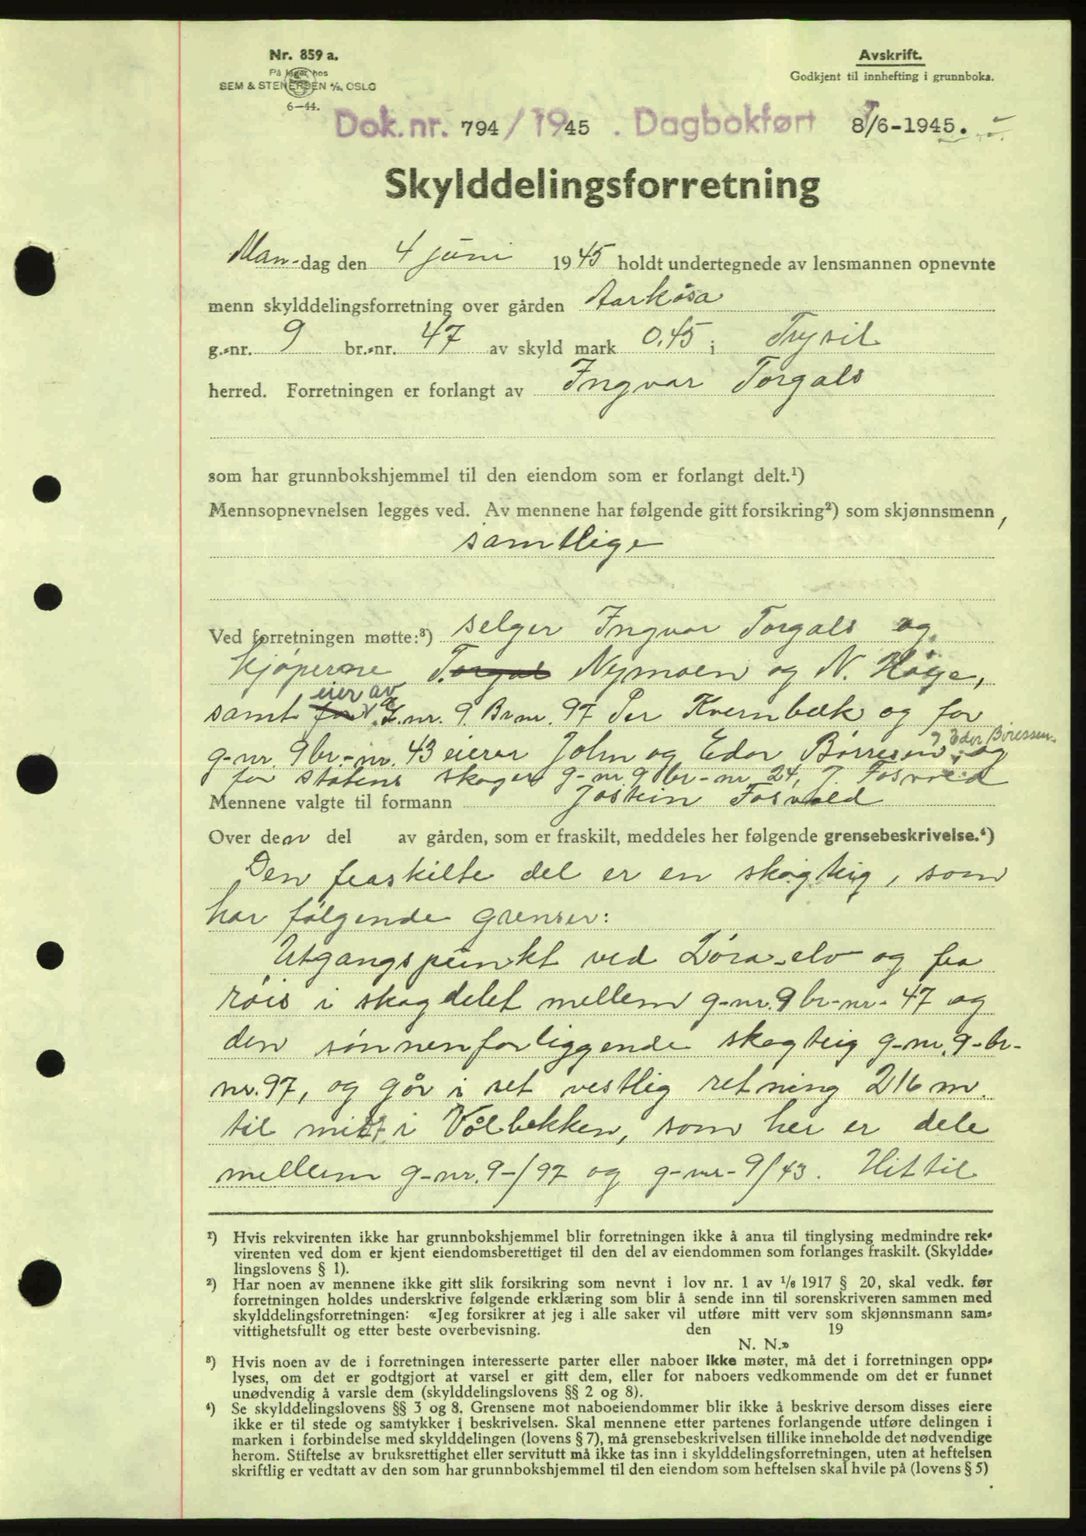 Nr. 859 a.
På lager hos
SEM & STENERSEN A/S, OSLO
6—44.
Avskrift.
Godkjent til innhefting i grunnboka.
Dok. nr. 794 / 1945 . Dagbokført 8/6-1945.
Skylddelingsforretning
Man-dag den 4 juni 1945 holdt undertegnede av lensmannen opnevnte
menn skylddelingsforretning over gården Aarkösa
g.-nr. 9 br.-nr. 47 av skyld mark 0.45 i Trysil
herred. Forretningen er forlangt av Ingvar Torgals
som har grunnbokshjemmel til den eiendom som er forlangt delt.¹)
Mennsopnevnelsen legges ved. Av mennene har følgende gitt forsikring²) som skjønnsmenn,
samtlige
Ved forretningen møtte:³) selger Ingvar Torgals og
kjøperne Torgal Nymoen og N. Høge,
eier av
samt for G.nr. 9 Br.nr. 97 Per Kvernbæk og for
g-nr. 9 br.-nr. 43 eierer John og Edor Børresen, og
for statens skoger g-nr 9 br-nr 24, J. Fosvold
Mennene valgte til formann Jostein Fosvold
Over den del av gården, som er fraskilt, meddeles her følgende grensebeskrivelse.⁴)
Den fraskilte del er en skogteig, som
har følgende grenser:
Utgangspunkt ved Løra-elv og fra
røis i skogdelet mellem g-nr. 9 br-nr- 47 og
den sønnenforliggende skogteig g-nr. 9-br-
nr. 97, og går i ret vestlig retning 216 m.
til midt i Vålbekken, som her er dele
mellem g-nr. 9-/97 og g-nr- 9/43. Hit til
¹) Hvis rekvirenten ikke har grunnbokshjemmel blir forretningen ikke å anta til tinglysing medmindre rek-
virenten ved dom er kjent eiendomsberettiget til den del av eiendommen som forlanges fraskilt. (Skyldde-
lingslovens § 1).
²) Har noen av mennene ikke gitt slik forsikring som nevnt i lov nr. 1 av 1/6 1917 § 20, skal vedk. før
forretningen holdes underskrive følgende erklæring som blir å sende inn til sorenskriveren sammen med
skylddelingsforretningen: «Jeg forsikrer at jeg i alle saker vil utføre mitt verv som skjønnsmann sam-
vittighetsfullt og etter beste overbevisning. den 19
N. N.»
³) Hvis noen av de i forretningen interesserte parter eller naboer ikke møter, må det i forretningen opp-
lyses, om det er godtgjort at varsel er gitt dem, eller for naboers vedkommende om det er funnet
unødvendig å varsle dem (skylddelingslovens §§ 2 og 8).
⁴) Se skylddelingslovens §§ 3 og 8. Grensene mot naboeiendommer blir ikke å beskrive dersom disses eiere
ikke er til stede og samtykker i beskrivelsen. Skal mennene etter partenes forlangende utføre delingen i
marken i forbindelse med skylddelingen (lovens § 7), må grensebeskrivelsen tillike inneholde det nødvendige
herom. Stiftelse av bruksrettighet eller servitutt må ikke tas inn i skylddelingsforretningen, uten at heftelsen
skriftlig er vedtatt av den som har grunnbokshjemmel til den eiendom som heftelsen skal hvile på (lovens § 5)